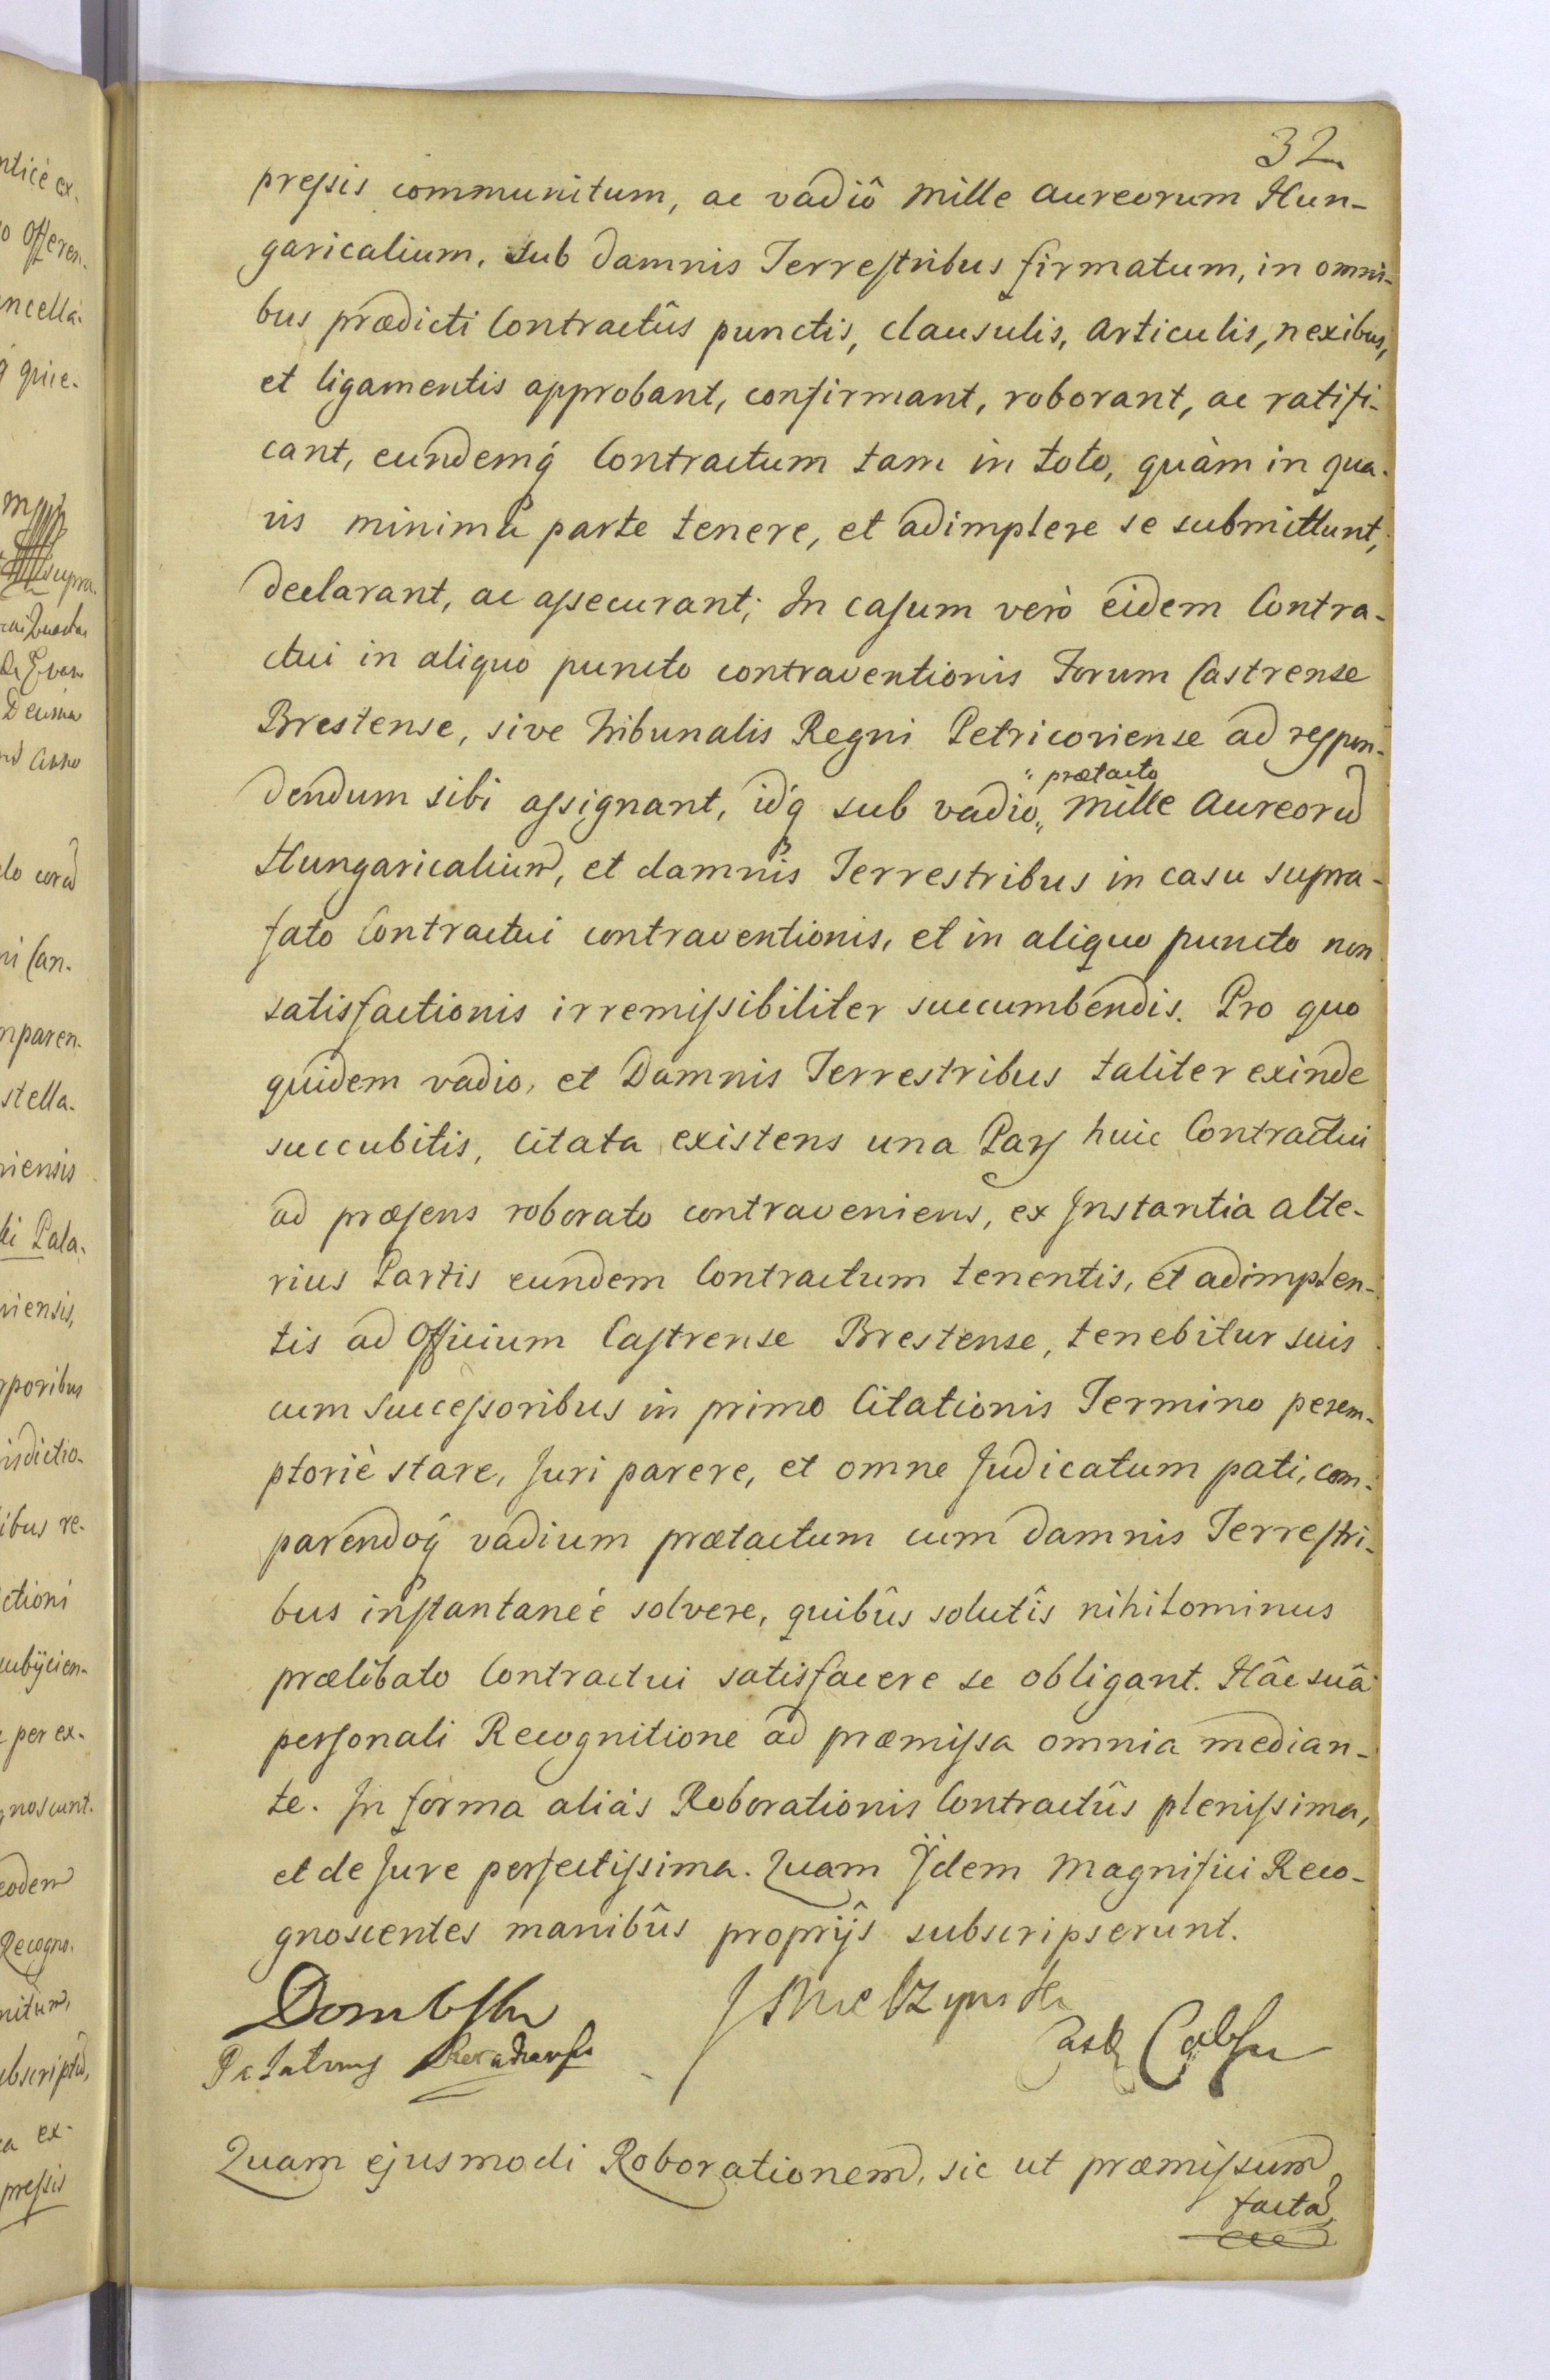 32
preſsis communitum, ac vadiô Mille Aureorum Hun-
garicalium, sub damnis Terreſtribus firmatum, in omni-
bus prædicti Contractûs punctis, clausulis, Articulis, nexibus,
et ligamentis approbant, confirmant, roborant, ac ratifi-
cant, eundemq́ Contractum tam in toto, quàm in qua-
vis minima parte tenere, et adimplere se submittunt,
declarant, ac aſsecurant; In caſum verò eidem Contra-
ctui in aliquo puncto contraventionis Forum Castrense
Brestense, sive Tribunalis Regni Petricoviense ad reſpon-
dendum sibi aſsignant, idq́ sub vadio „ prætacto „ Mille Aureorũ
Hungaricaliũm, et damnis Terrestribus in casu supra-
fato Contractui contraventionis, et in aliquo puncto non
satisfactionis irremiſsibiliter succumbendis. Pro quo
quidem vadio, et Damnis Terrestribus taliter exinde
succubitis, Citata existens una Pars huic Contractui
ad præſens roborato contraveniens, ex Instantia alte-
rius Partis eundem Contractum tenentis, et adimplen-
tis ad Officium Caſtrense Brestense, tenebitur suis
cum Succeſsoribus in primo Citationis Termino perem-
ptoriè stare, Juri parere, et omne Judicatum pati, com-
parendoq́ vadium prætactum cum damnis Terreſtri-
bus inſtantaneé solvere, quibûs solutîs nihilominus
prælibato Contractui satisfacere se obligant. Hâc suâ
perſonali Recognitione ad præmiſsa omnia median-
te. In forma aliàs Roborationis Contractûs pleniſsima,
et de Jure perfectiſsima. Quam Ijdem Magnifici Reco-
gnoscentes manibûs proprijs subscripserunt.
Dombſki
J Mielzynski
Quam ejusmodi Roborationem, sic ut præmiſsum
factã
nticè ex-
o Offeren-
ncella-
q́ quie-
supra
Decima
Anno
lo corã
ni Can-
mparen-
stella-
niensis
li Pala-
niensis,
rporibus
isdictio-
ibus re-
ctioni
ubÿcien-
per ex-
gnoscunt.
eodem
Recogno-
nitum,
ubscriptũ,
a ex-
preſsis